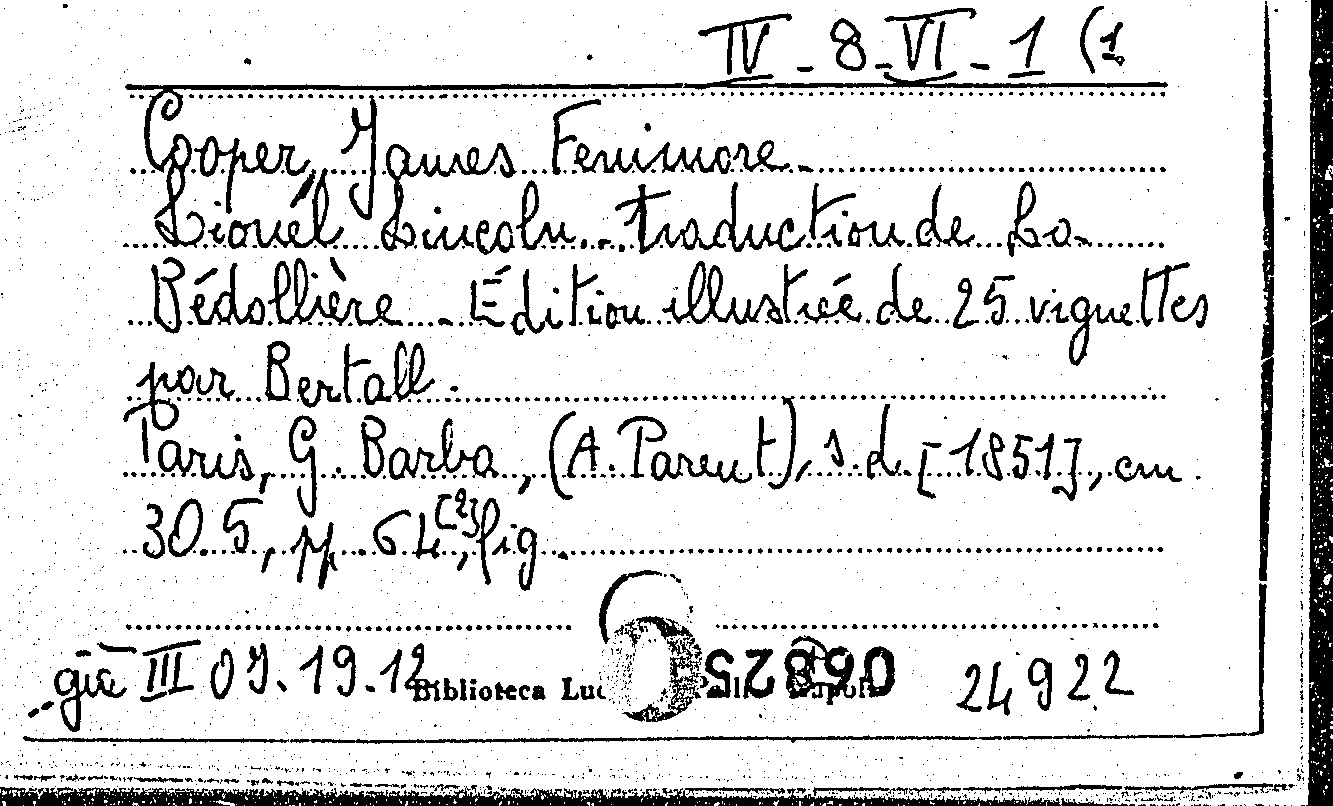 IV - 8 - VI - 1 (1.
Cooper, James Fenimore -
Lionél Lincoln. - Traduction de La-
Bédollière - Édition illustrée de 25 vignettes
par Bertall.
Paris, G. Barba, (A. Parent), s.d. [1851], cm.
30.5, pp. 64, [2] fig.
già III 07.19.12 Biblioteca 24922